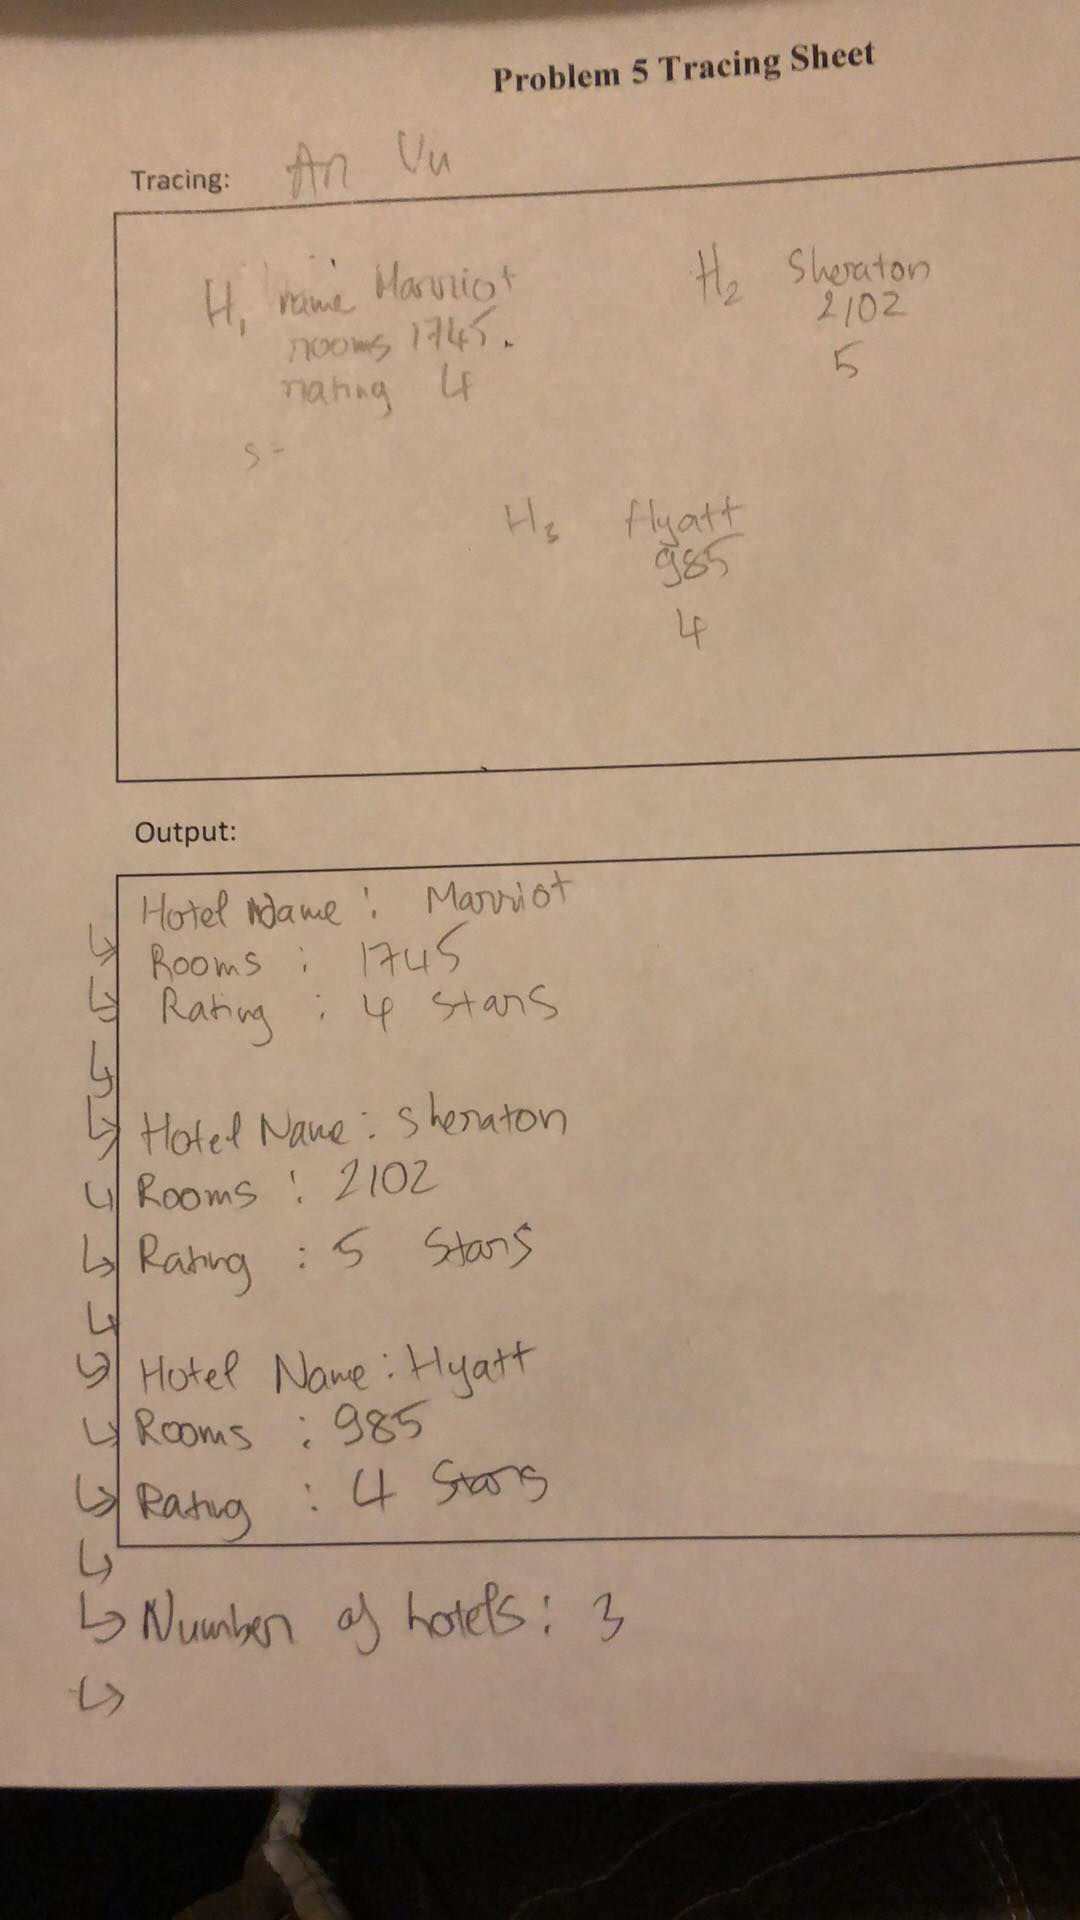 Problem 5 Tracing Sheet
Tracing: An Vu
H1 name Marriot
rooms 1745.
rating 4
s=
H2 Sheraton
2102
5
H3 Hyatt
985
4
Output:
Hotel Name : Marriot
↳ Rooms : 1745
↳ Rating : 4 stars
↳
↳ Hotel Name : Sheraton
↳ Rooms : 2102
↳ Rating : 5 Stars
↳
↳ Hotel Name : Hyatt
↳ Rooms : 985
↳ Rating : 4 Stars
↳
↳ Number of hotels : 3
↳